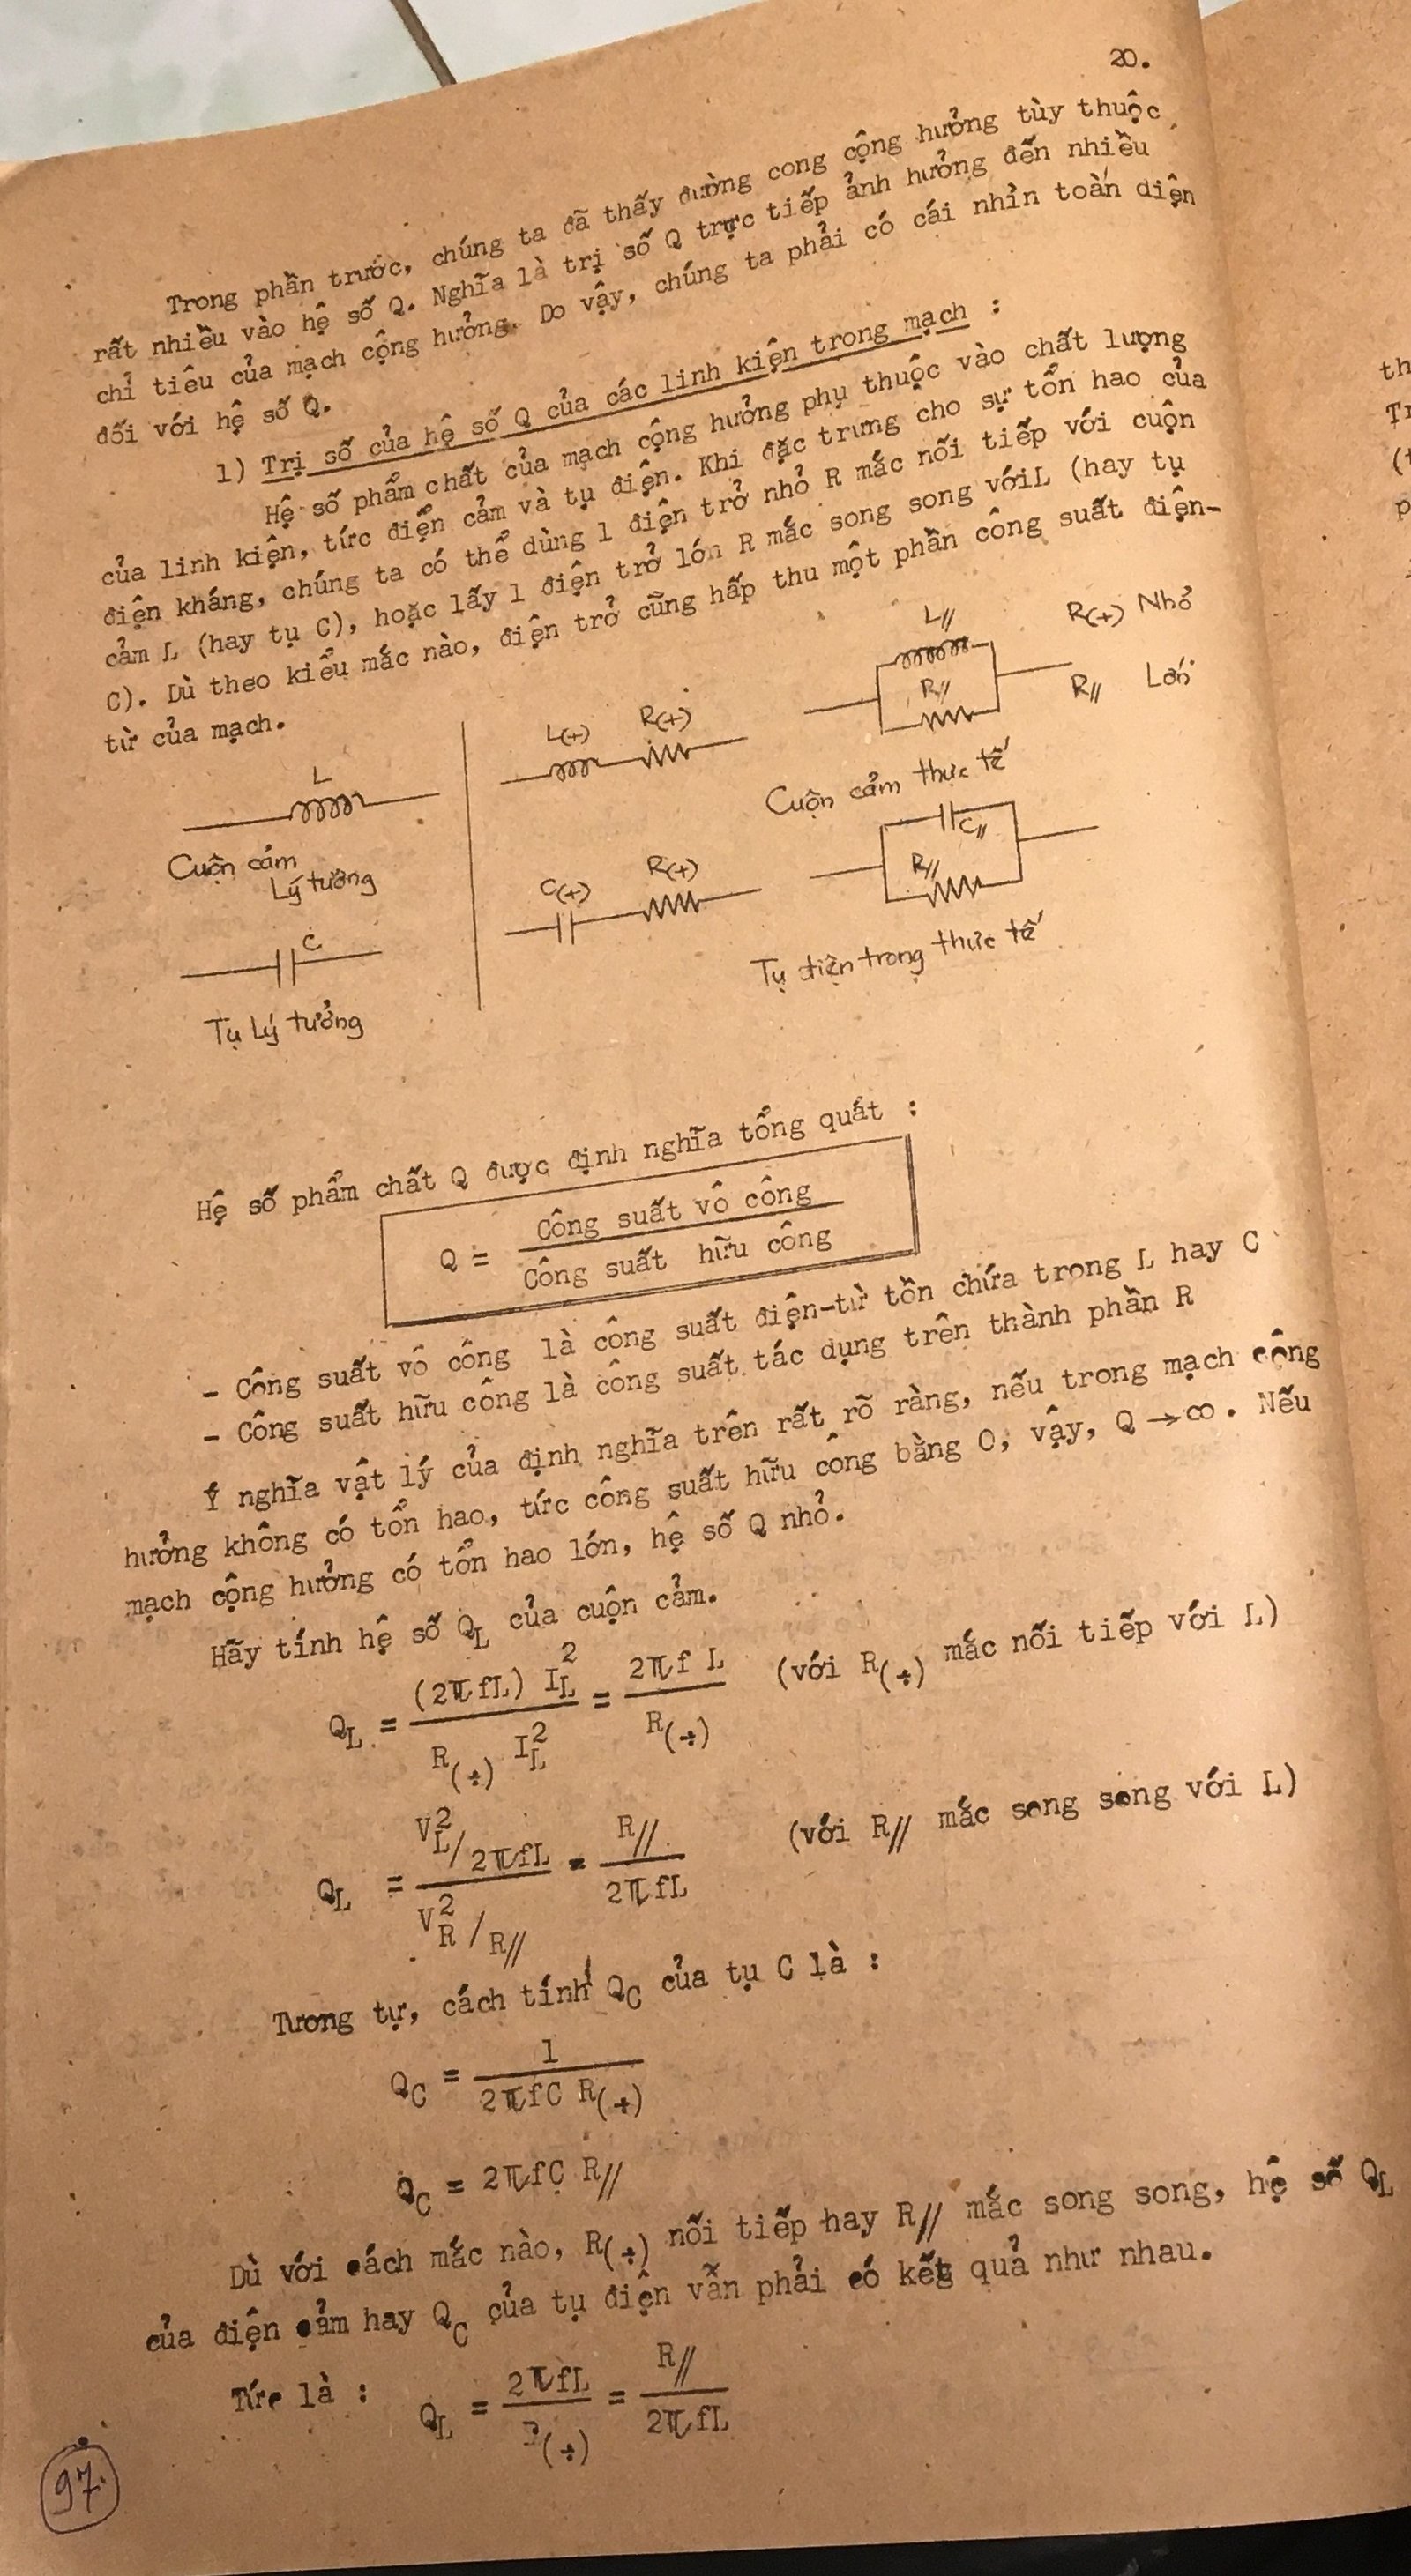 20.
Trong phần trước, chúng ta đã thấy đường cong cộng hưởng tùy thuộc
rất nhiều vào hệ số Q. Nghĩa là trị số Q trực tiếp ảnh hưởng đến nhiều
chỉ tiêu của mạch cộng hưởng. Do vậy, chúng ta phải có cái nhìn toàn diện
đối với hệ số Q.
1) Trị số của hệ số Q của các linh kiện trong mạch :
Hệ số phẩm chất của mạch cộng hưởng phụ thuộc vào chất lượng
của linh kiện, tức điện cảm và tụ điện. Khi đặc trưng cho sự tổn hao của
điện kháng, chúng ta có thể dùng 1 điện trở nhỏ R mắc nối tiếp với cuộn
cảm L (hay tụ C), hoặc lấy 1 điện trở lớn R mắc song song với L (hay tụ
C). Dù theo kiểu mắc nào, điện trở cũng hấp thu một phần công suất điện-
từ của mạch.
L
Cuộn cảm
Lý tưởng
C
Tụ Lý tưởng
L(÷) R(÷)
L// R(÷) Nhỏ
R// R// Lớn
Cuộn cảm thực tế
C(÷) R(÷)
C//
R//
Tụ điện trong thực tế
Hệ số phẩm chất Q được định nghĩa tổng quát :
Q = Công suất vô công / Công suất hữu công
- Công suất vô công là công suất điện-từ tồn chứa trong L hay C
- Công suất hữu công là công suất tác dụng trên thành phần R
Ý nghĩa vật lý của định nghĩa trên rất rõ ràng, nếu trong mạch cộng
hưởng không có tổn hao, tức công suất hữu công bằng 0, vậy, Q → ∞. Nếu
mạch cộng hưởng có tổn hao lớn, hệ số Q nhỏ.
Hãy tính hệ số Q_L của cuộn cảm.
Q_L = (2πfL) I_L² / R(÷) I_L² = 2πf L / R(÷) (với R(÷) mắc nối tiếp với L)
Q_L = V_L²/2πfL / V_R²/R// = R// / 2πfL (với R// mắc song song với L)
Tương tự, cách tính Q_C của tụ C là :
Q_C = 1 / 2πfC R(÷)
Q_C = 2πfC R//
Dù với cách mắc nào, R(÷) nối tiếp hay R// mắc song song, hệ số Q_L
của điện cảm hay Q_C của tụ điện vẫn phải có kết quả như nhau.
Tức là : Q_L = 2πfL / R(÷) = R// / 2πfL
97.